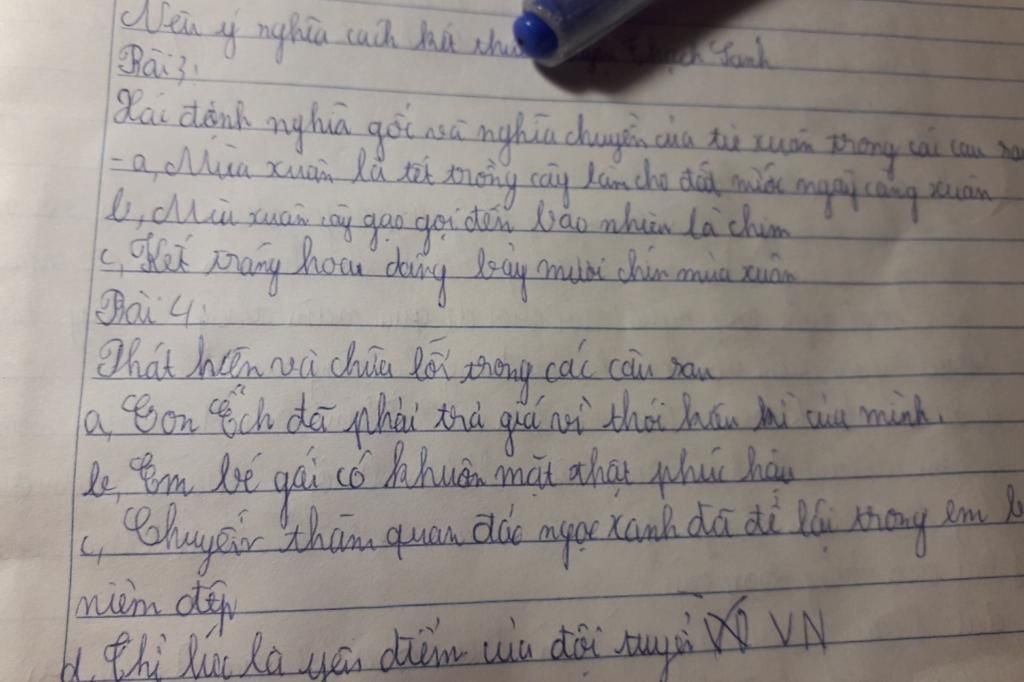 Nêu ý nghĩa cách kết thúc Thạch Sanh
Bài 3:
Xác định nghĩa gốc và nghĩa chuyển của từ xuân trong các câu sau
- a, Mùa xuân là tết trồng cây làm cho đất nước ngày càng xuân
b, Mùa xuân cây gạo gọi đến bao nhiêu là chim
c, Kết tràng hoa dâng bảy mươi chín mùa xuân
Bài 4:
Phát hiện và chữa lỗi trong các câu sau
a, Con Ếch đã phải trả giá vì thói hấu kì của mình.
b, Em bé gái có khuôn mặt thật phúc hậu
c, Chuyến thăm quan đảo ngọc xanh đã để lại trong em
niềm đẹp
d, Thể lực là yếu điểm của đội tuyển VN